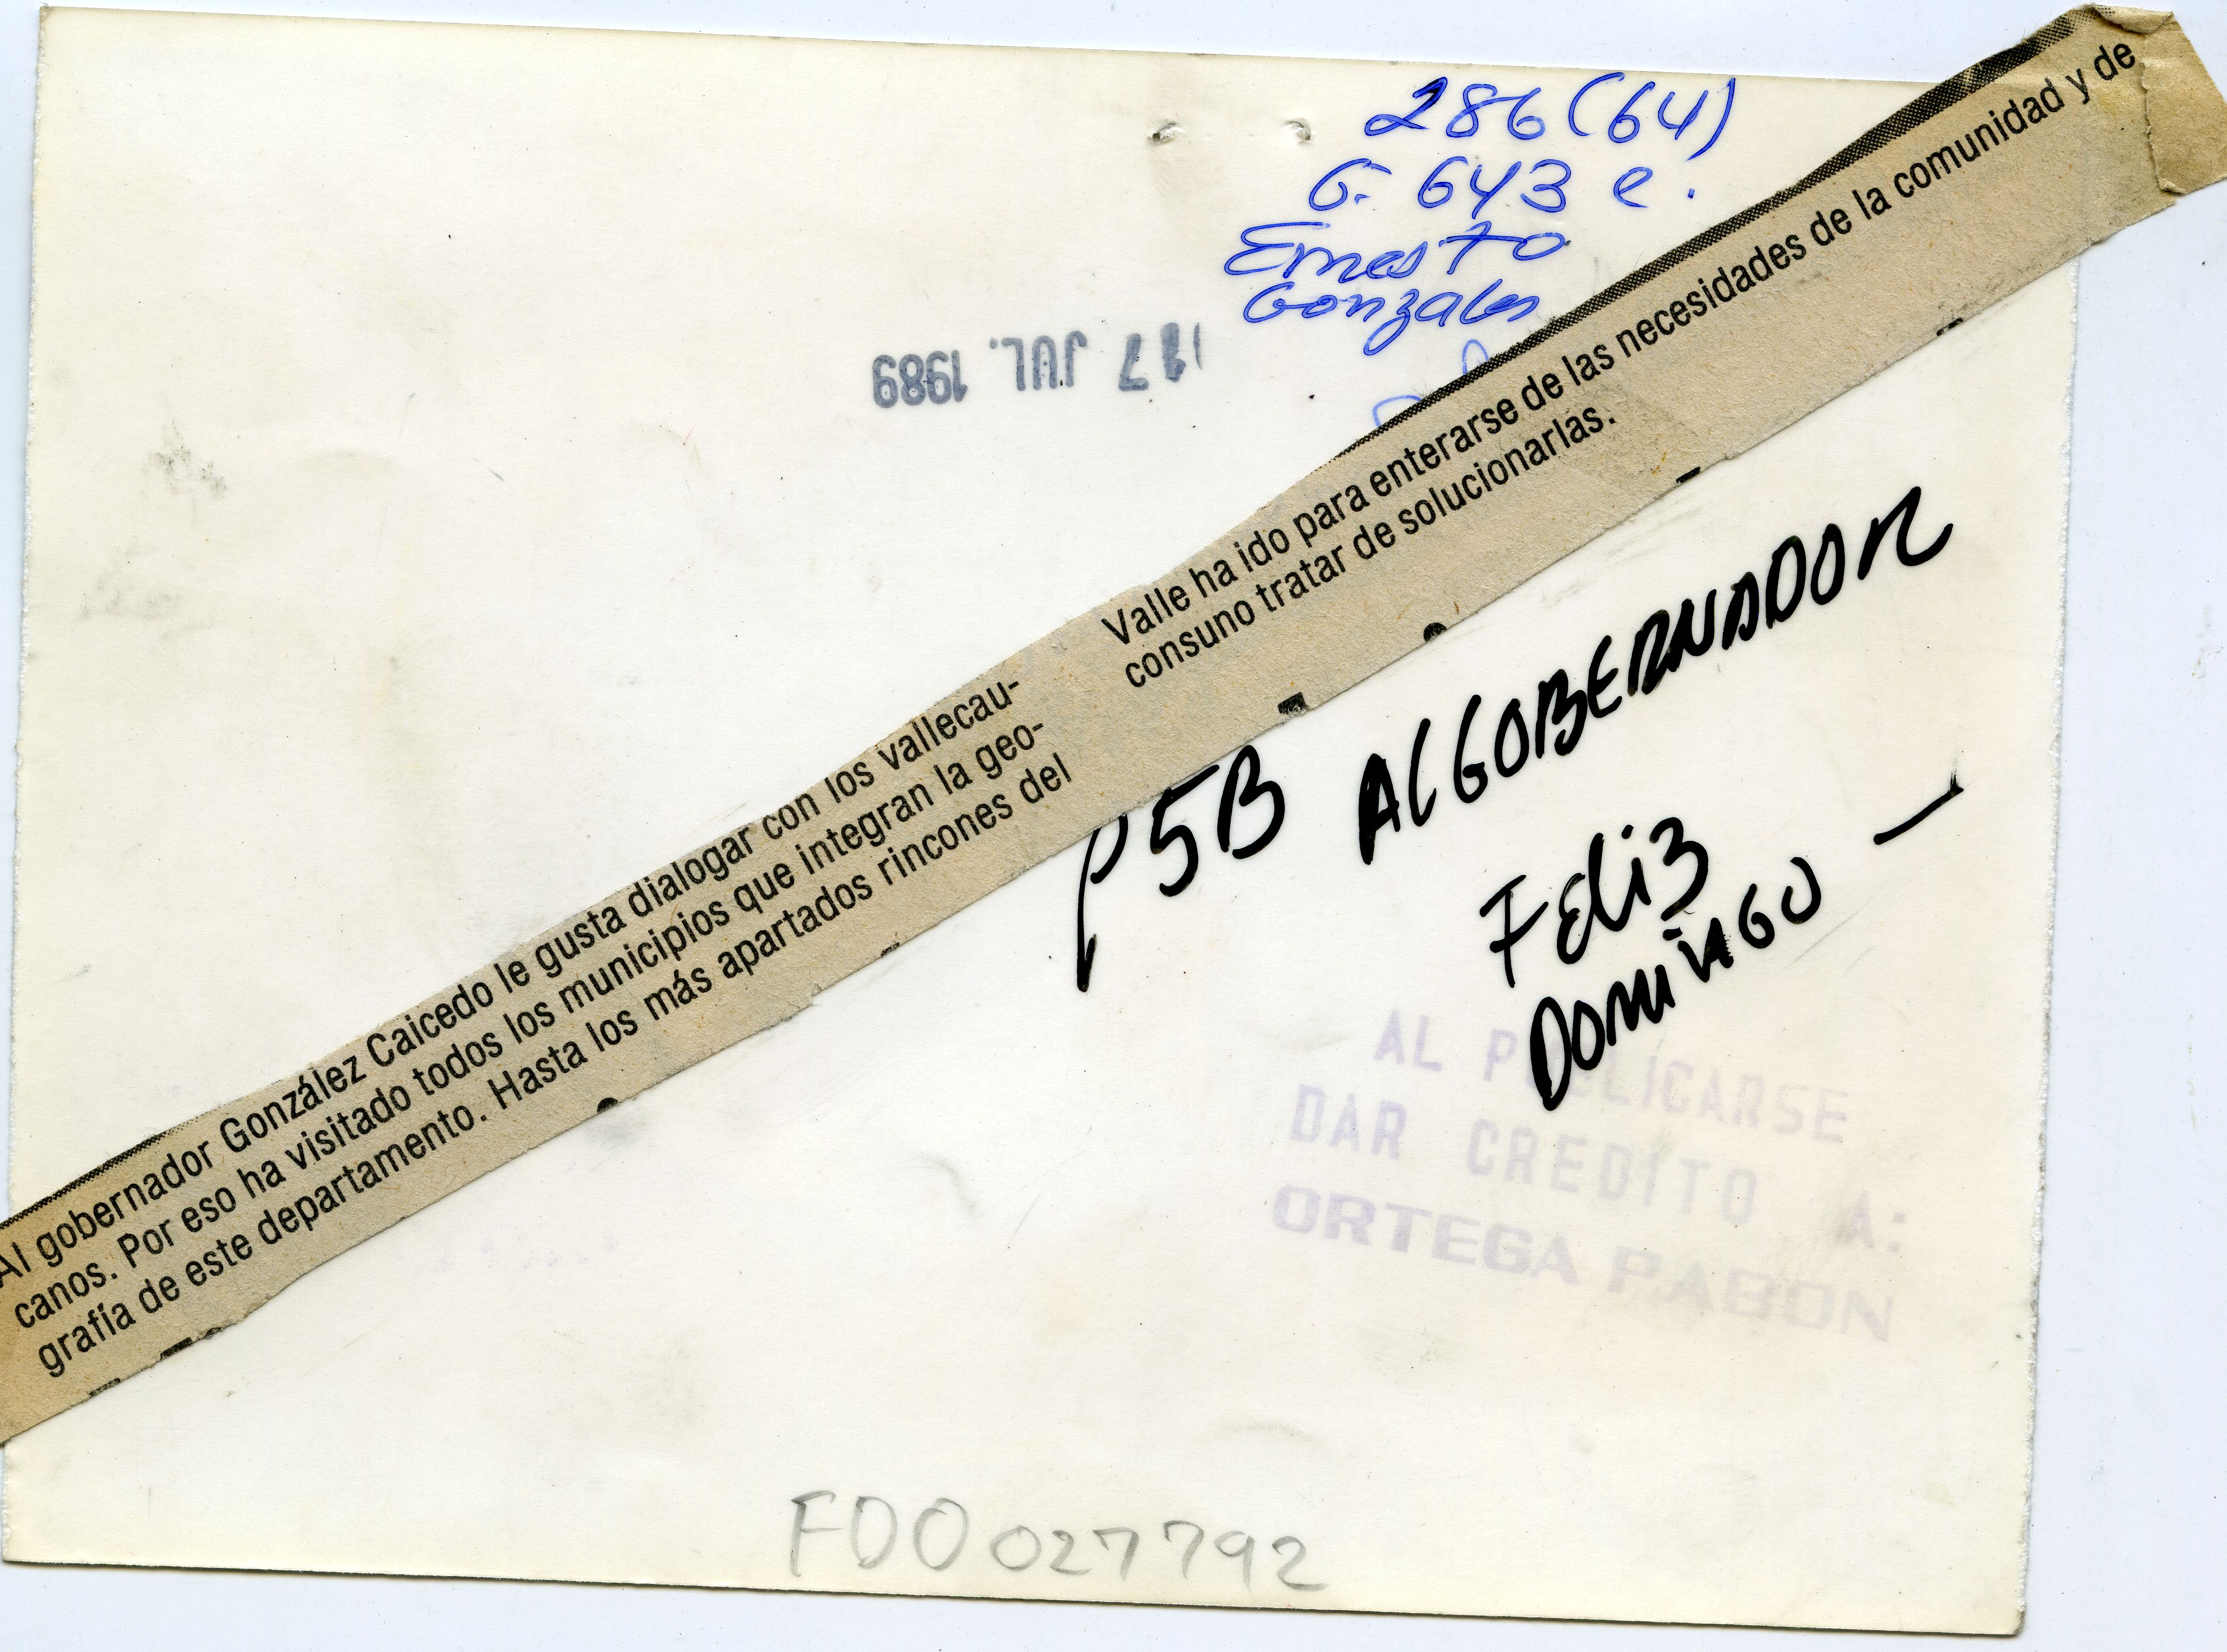 286(64)
G. 643 e.
Ernesto
Gonzales
17 JUL. 1989
Al gobernador González Caicedo le gusta dialogar con los vallecau-
canos. Por eso ha visitado todos los municipios que integran la geo-
grafía de este departamento. Hasta los más apartados rincones del
Valle ha ido para enterarse de las necesidades de la comunidad y de
consuno tratar de solucionarlas.
P5B AL GOBERNADOR
Feliz
DOMINGO —
AL PUBLICARSE
DAR CREDITO A:
ORTEGA PABON
FDO027792